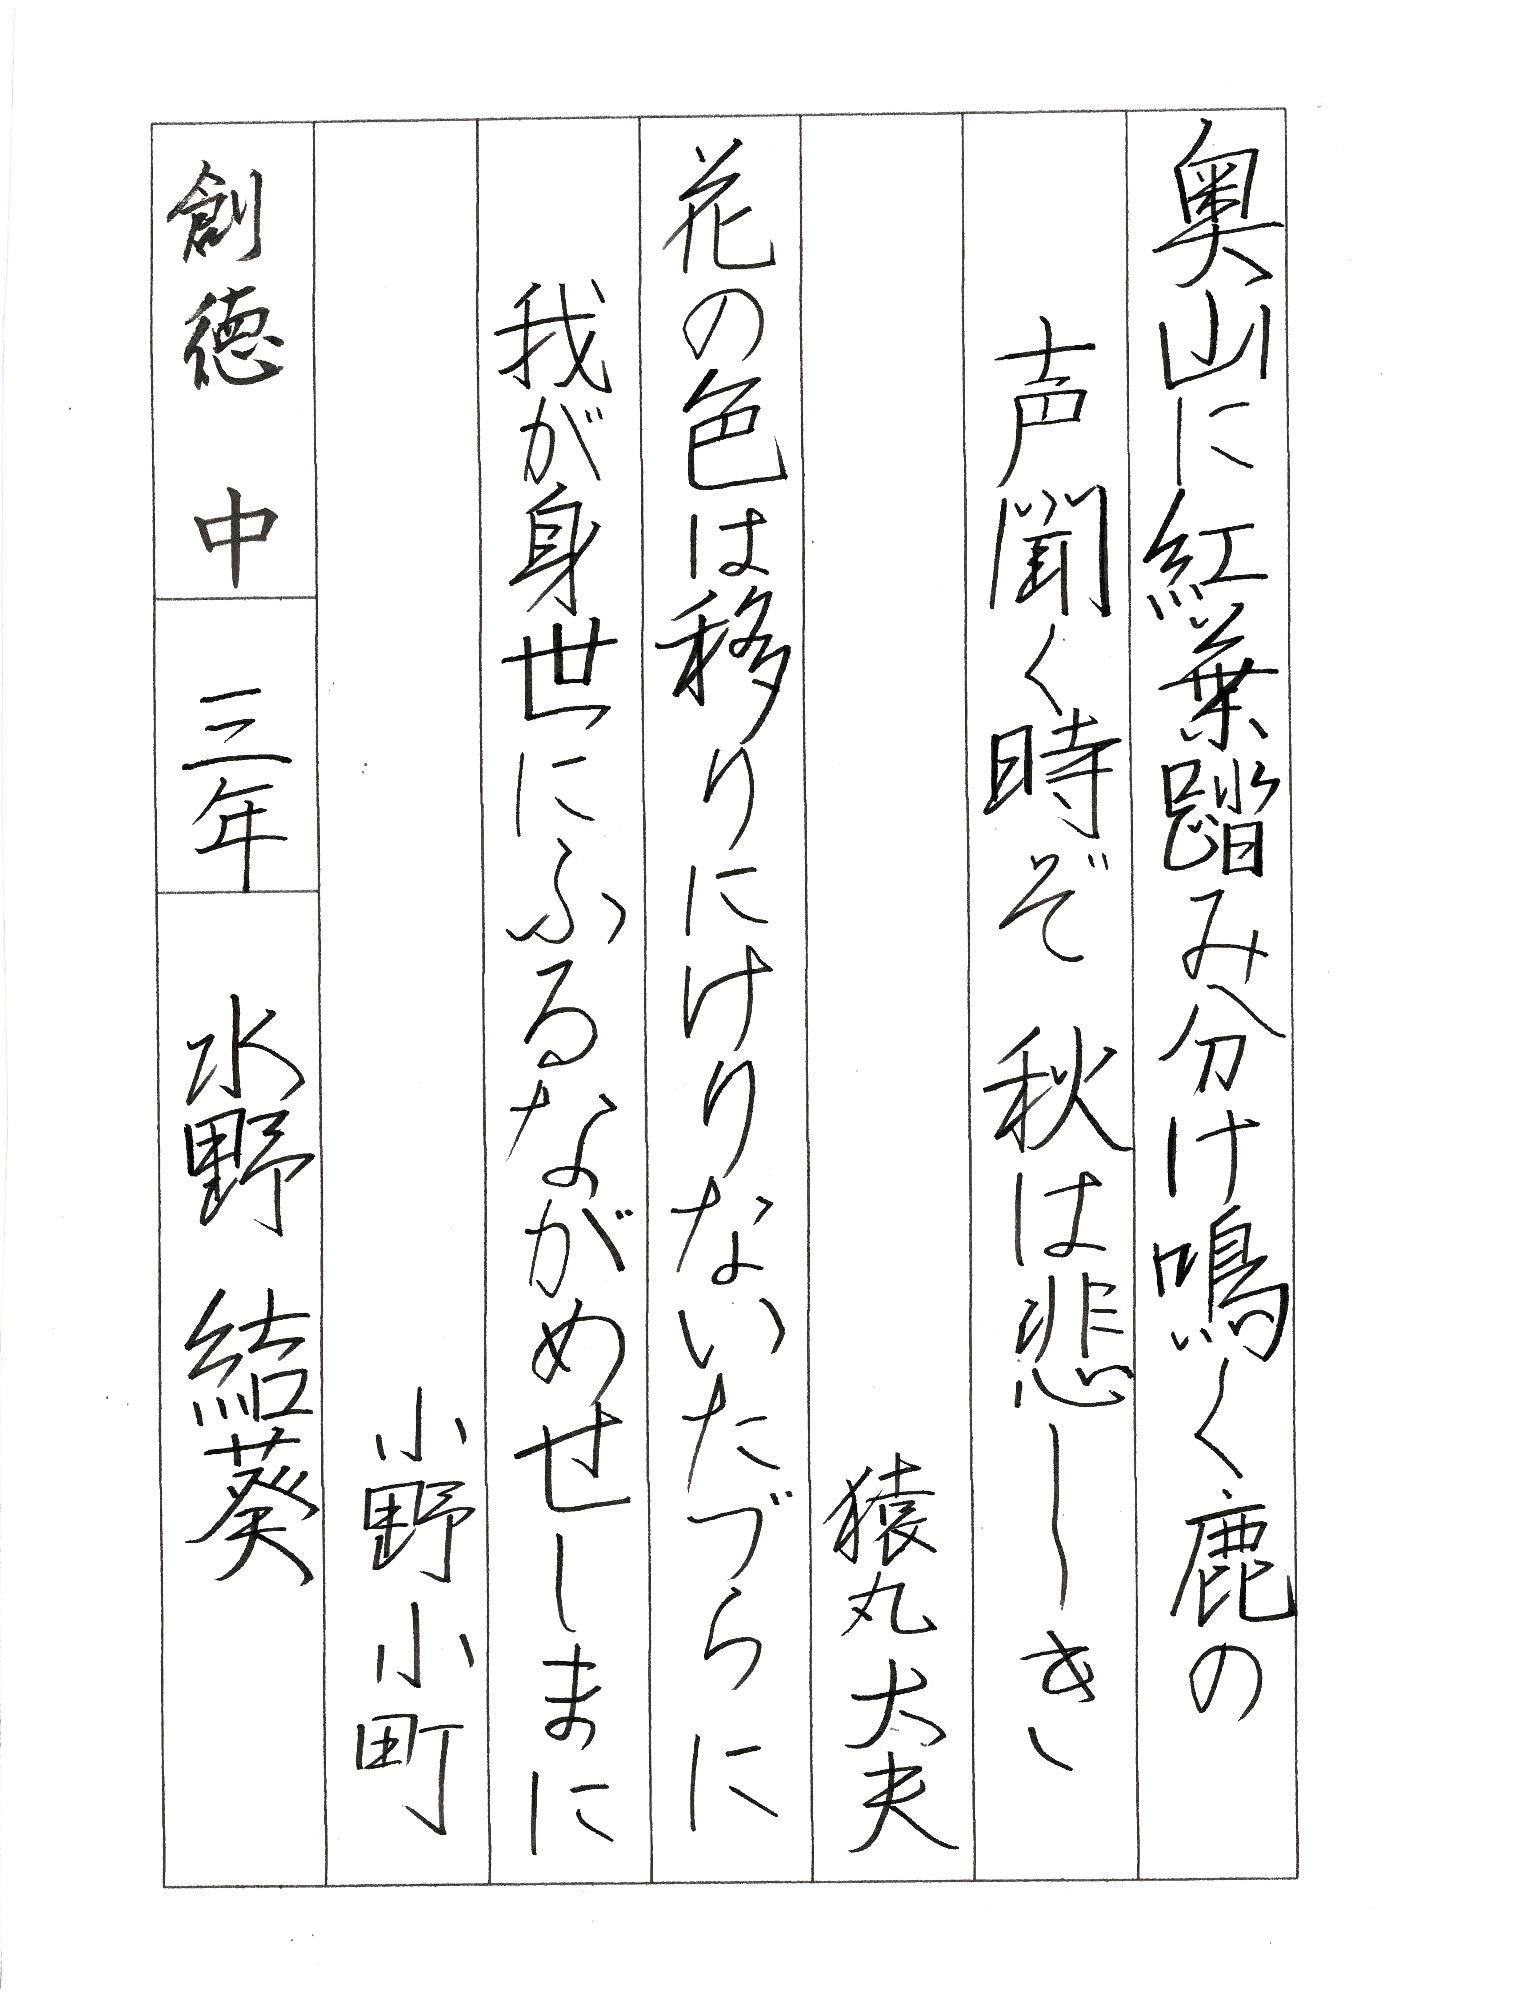 奥山に紅葉踏み分け鳴く鹿の
声聞く時ぞ 秋は悲しき
猿丸大夫
花の色は移りにけりないたづらに
我が身世にふるながめせしまに
小野小町
創徳 中 三年 水野 結葵